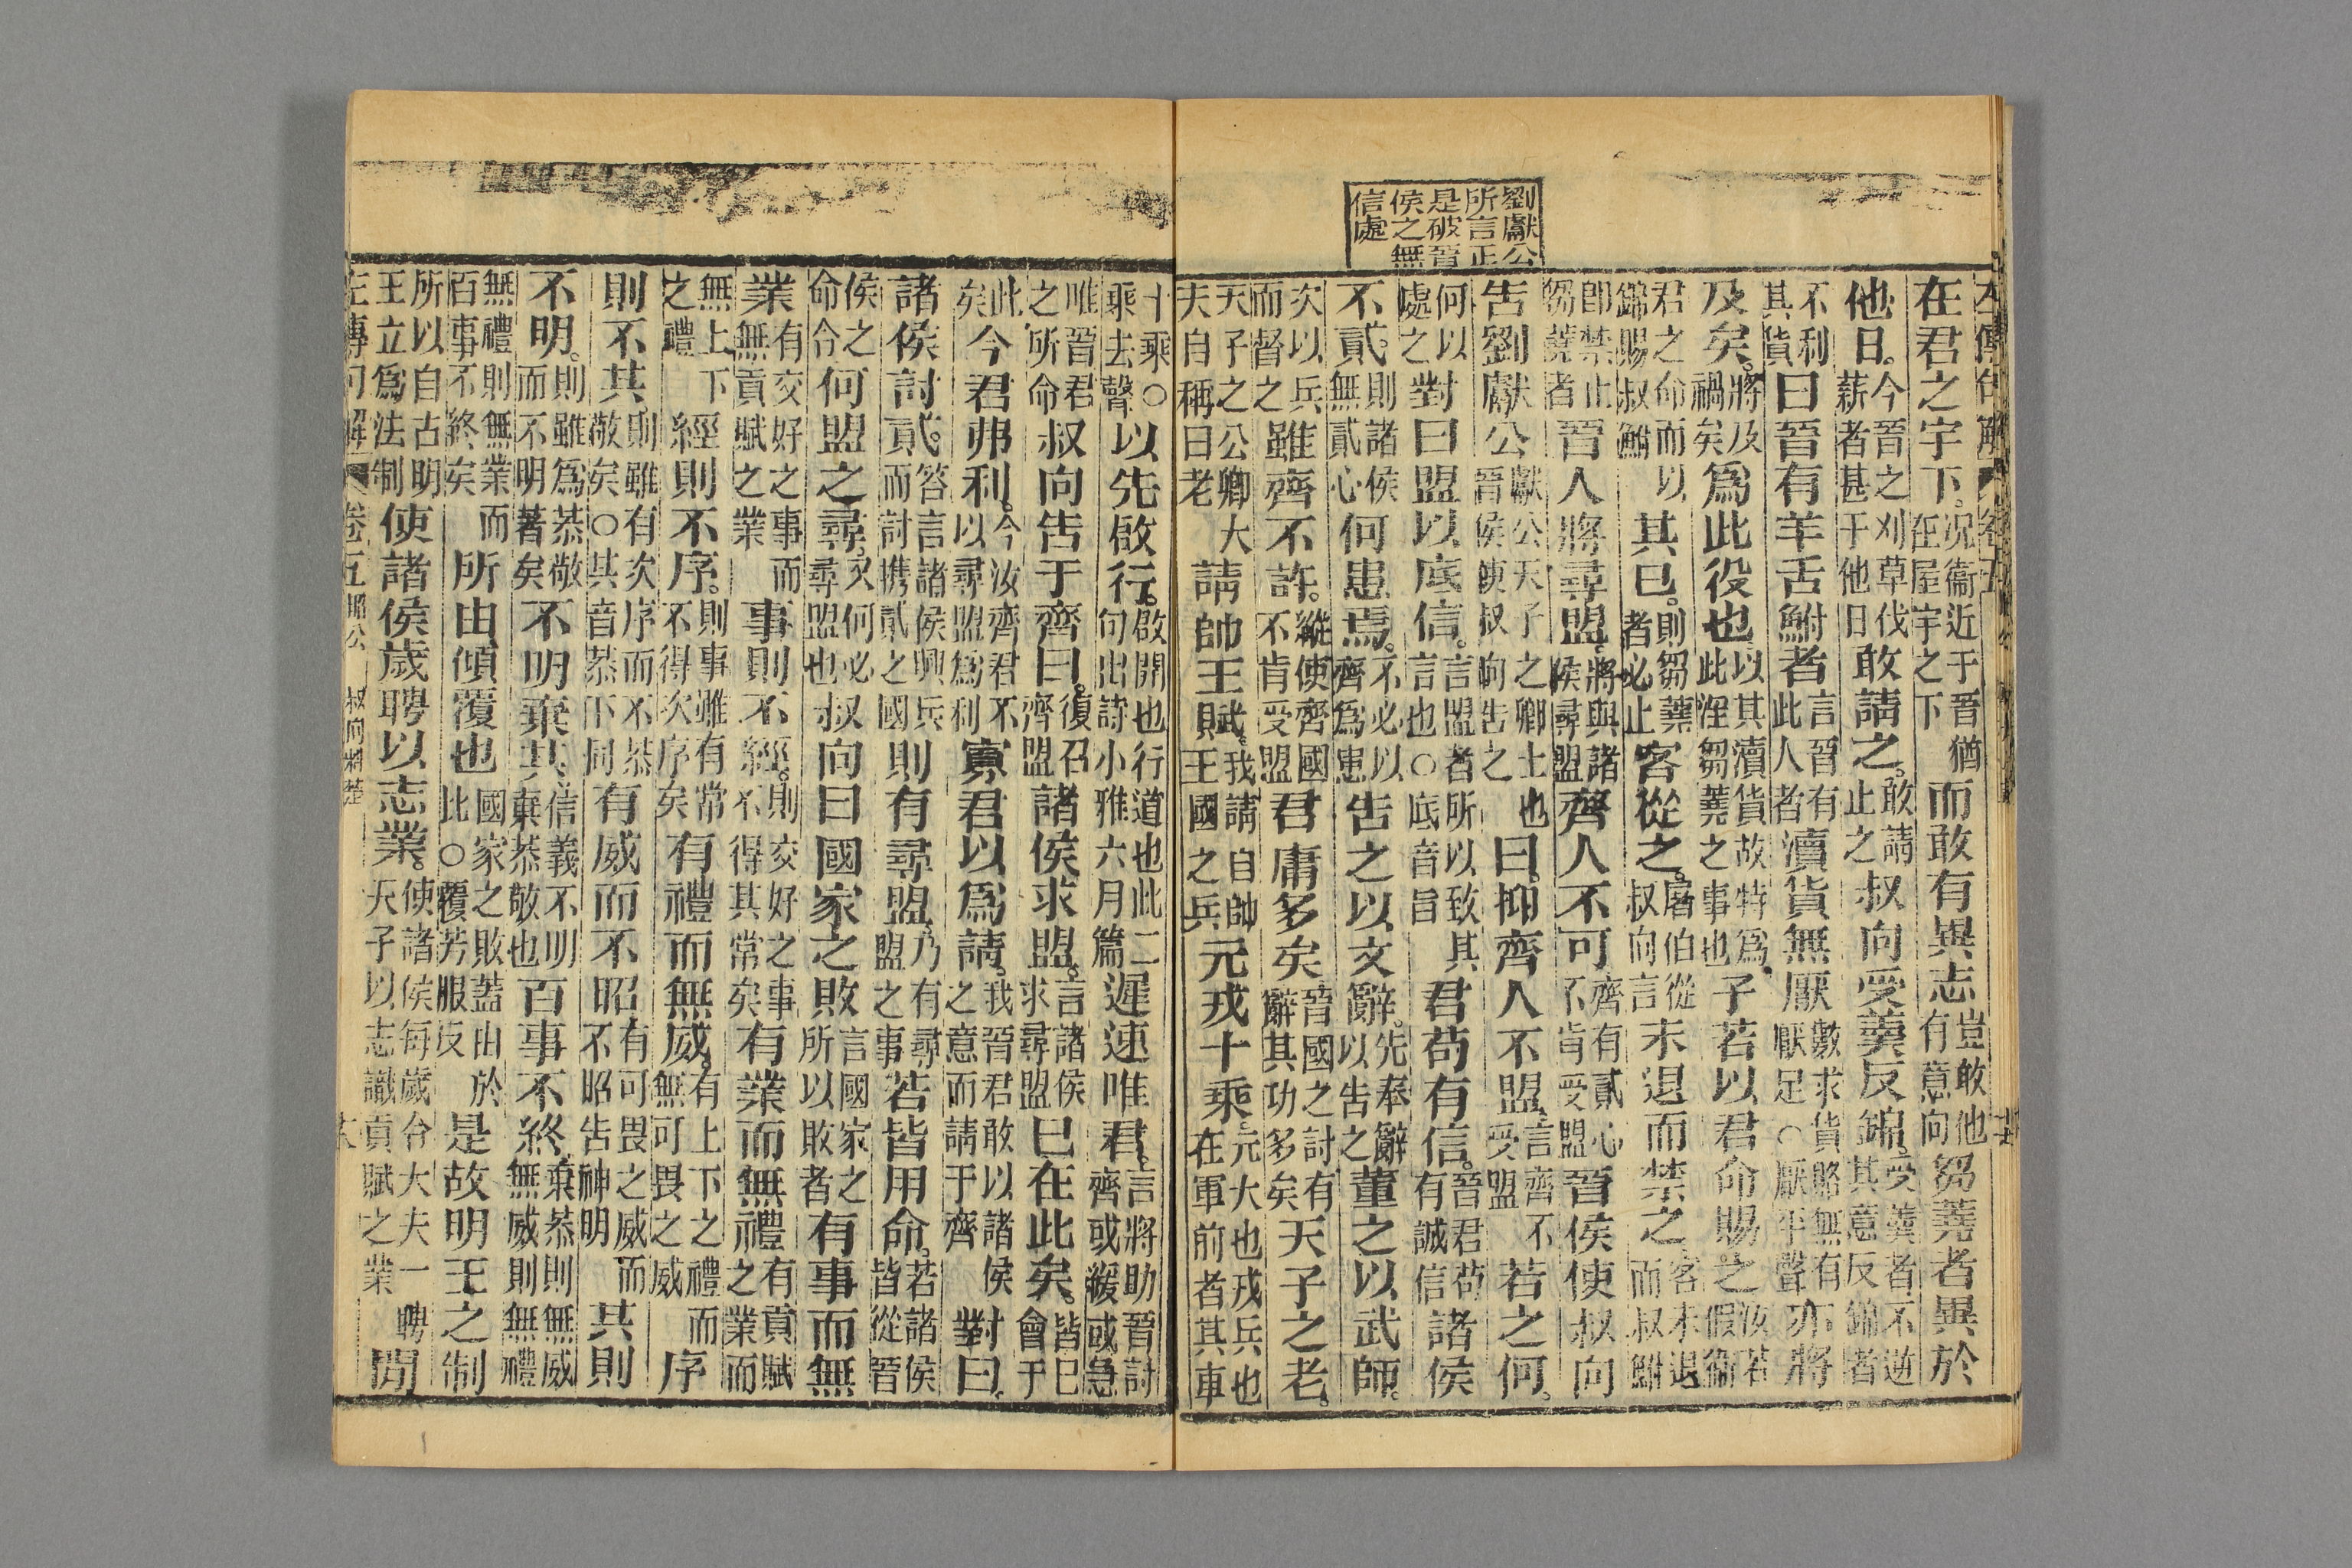 劉獻公
所言正
是破晉
侯之無
信處
在君之宇下。况衞近于晉猶在屋宇之下而敢有異志豈敢他有意向芻蕘者異於
他日。今晉之刈草伐薪者甚于他日敢請之。敢請止之叔向受羹反錦。受羹者不逆其意反錦者
不利其貨曰晉有羊舌鮒者言晉有此人者瀆貨無厭數求貨賂無有厭足○厭平聲亦將
及矣。將及禍矣爲此役也以其瀆貨故特爲此淫芻蕘之事也子若以君命賜之汝若假衞
君之命而以錦賜叔鮒其已。則芻蕘者必止客從之。屠伯從叔向言未退而禁之客未退而叔鮒
卽禁止芻蕘者晉人將尋盟。將與諸侯尋盟齊人不可齊有貳心不肯受盟晉侯使叔向
告劉獻公獻公天子之卿士也晉侯使叔向告之曰。抑齊人不盟。言齊不受盟若之何。
何以處之對曰盟以底信。言盟者所以致其言也○底音旨君苟有信。晉君苟有誠信諸侯
不貳。則諸侯無貳心何患焉。不必以齊爲患告之以文辭。先奉辭以告之董之以武師。
次以兵而督之雖齊不許。縱使齊國不肯受盟君庸多矣晉國之討有辭其功多矣天子之老。
天子之公卿大夫自稱曰老請帥王賦。我請自帥王國之兵元戎十乘。元大也戎兵也在軍前者其車
十乘○乘去聲以先啟行。啟開也行道也此二句出詩小雅六月篇遲速唯君。言將助晉討齊或緩或急
唯晉君之所命叔向告于齊曰。復召齊盟諸侯求盟。言諸侯求尋盟已在此矣。皆已會于
此矣今君弗利。今汝齊君不以尋盟爲利寡君以爲請。我晉君敢以諸侯之意而請于齊對曰。
諸侯討貳。答言諸侯興兵而討攜貳之國則有尋盟。乃有尋盟之事若皆用命。若諸侯皆從晉
侯之命令何盟之尋。又何必尋盟也叔向曰國家之敗言國家之所以敗者有事而無
業有交好之事而無貢賦之業事則不經。則交好之事不得其常矣有業而無禮有貢賦之業而
無上下之禮經則不序。則事雖有常不得次序矣有禮而無威。有上下之禮而無可畏之威序
則不其則雖有次序而不恭敬矣○其音恭下同有威而不昭有可畏之威而不昭告神明其則
不明。則雖爲恭敬而不明著矣不明棄其。信義不明棄恭敬也百事不終。棄恭則無威無威則無禮
無禮則無業而百事不終矣所由傾覆也國家之敗蓋由於此○覆芳服反是故明王之制
所以自古明王立爲法制使諸侯歲聘以志業。使諸侯每歲令大夫一聘天子以志識貢賦之業間
左傳句解 卷五 昭公